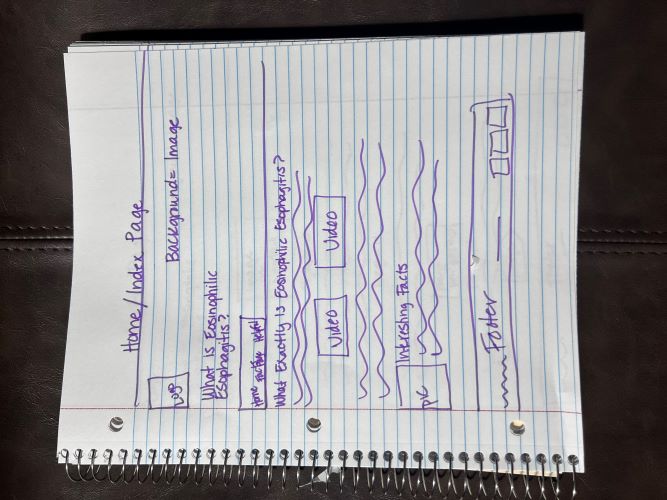 Home/Index Page
Logo
Background= Image
What is Eosinophilic
Esophagitis?
Home Fact Page Helpful
What Exactly Is Eosinophilic Esophagitis?
Video Video
Interesting Facts
pic
Footer